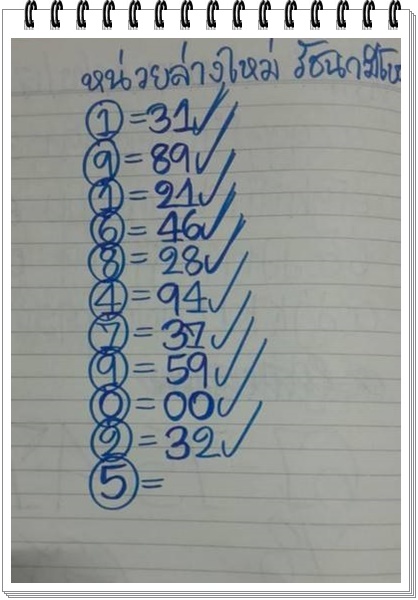 หน่วยล่างใหม่
1 = 31 ✓
9 = 89 ✓
1 = 21 ✓
6 = 46 ✓
8 = 28 ✓
4 = 94 ✓
7 = 37 ✓
9 = 59 ✓
0 = 00 ✓
2 = 32 ✓
5 =